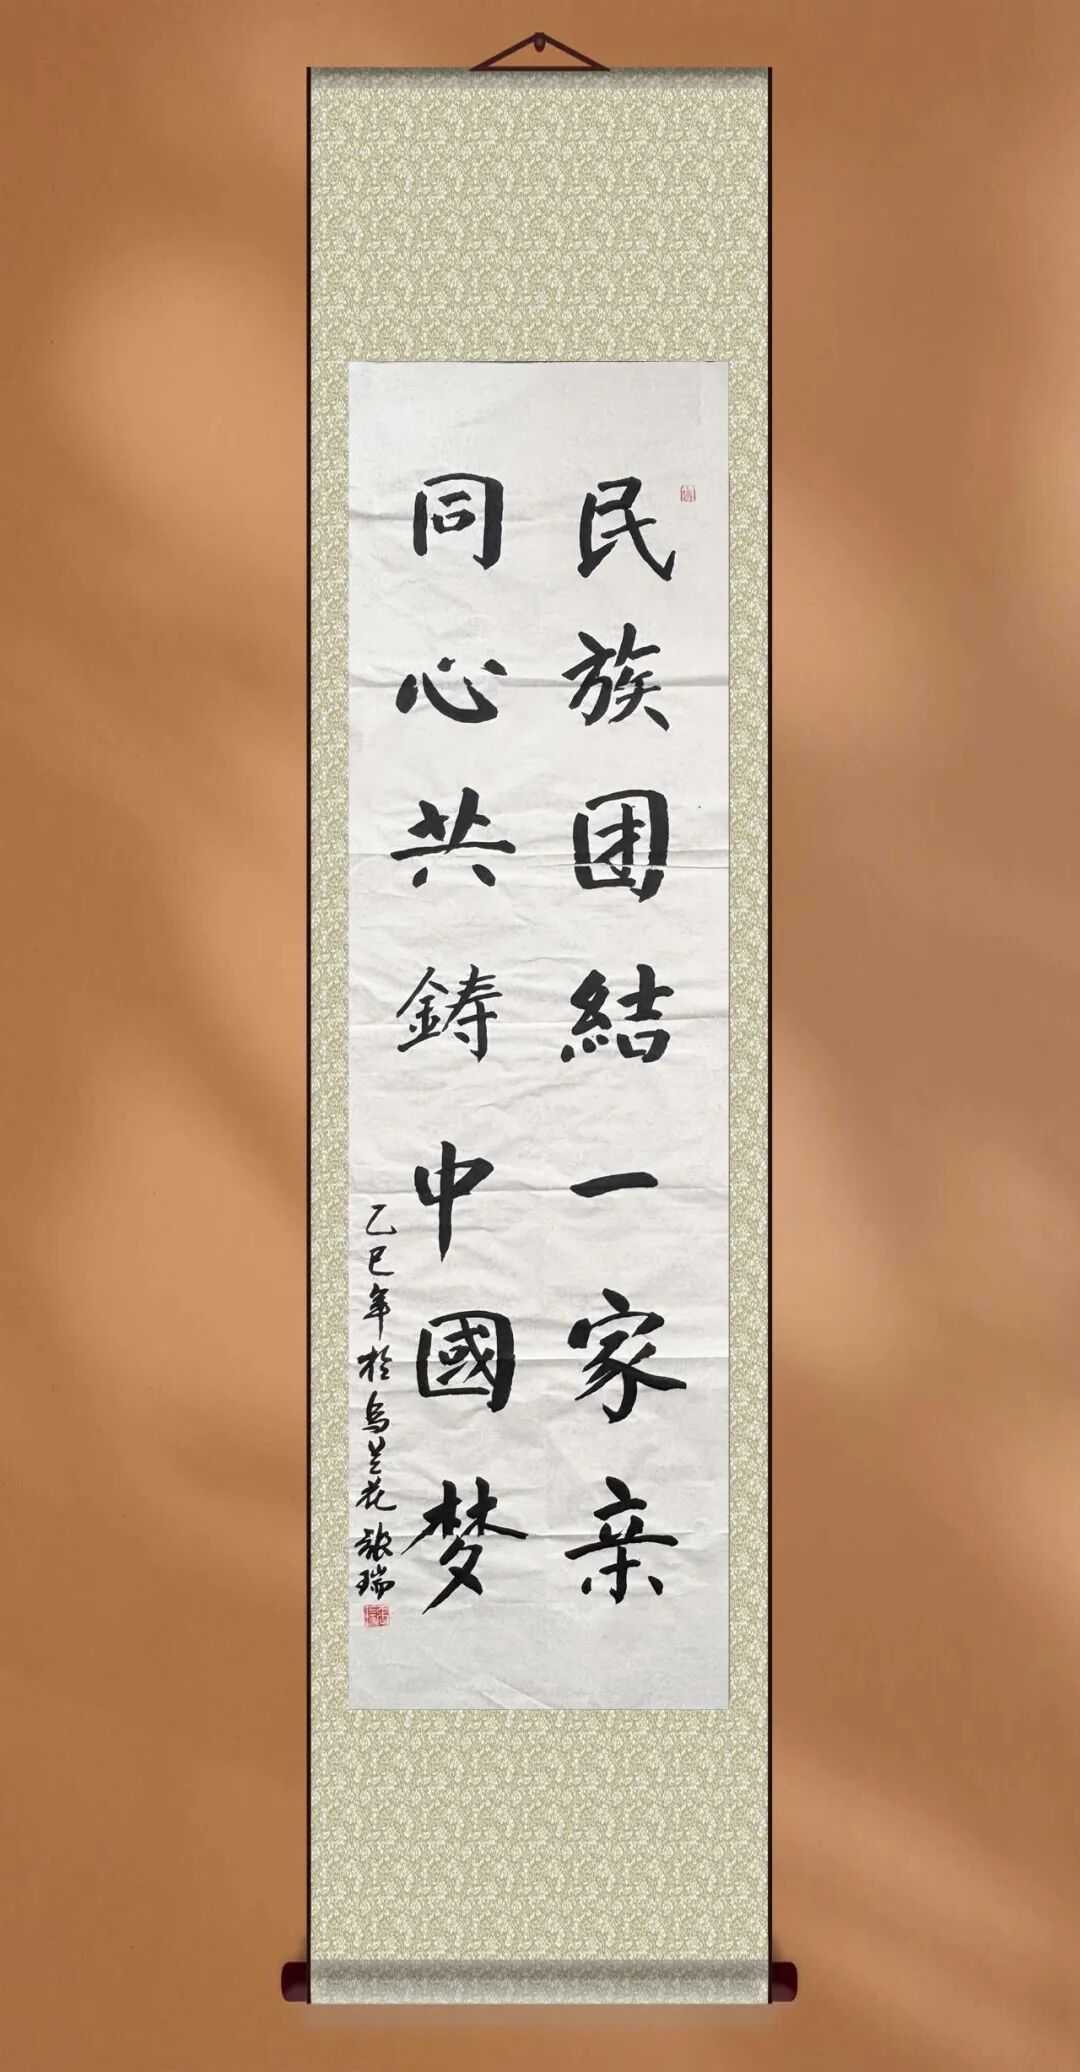 民族团結一家亲
同心共鋳中國梦
乙巳年於乌兰花 張瑞